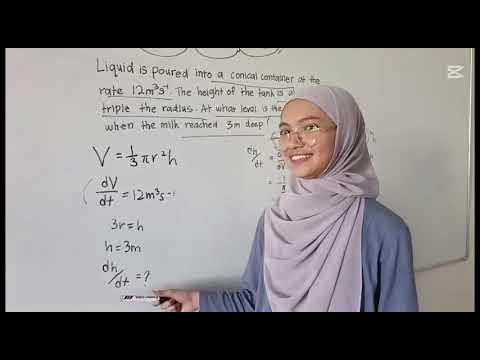 Liquid is poured into a conical container at the
rate 12m³s⁻¹. The height of the tank is al
triple the radius. At what level is the
when the milk reached 3m deep?
V = 1/3 πr²h
dV/dt = 12m³s⁻¹
3r = h
h = 3m
dh/dt = ?
dh/dt =
=